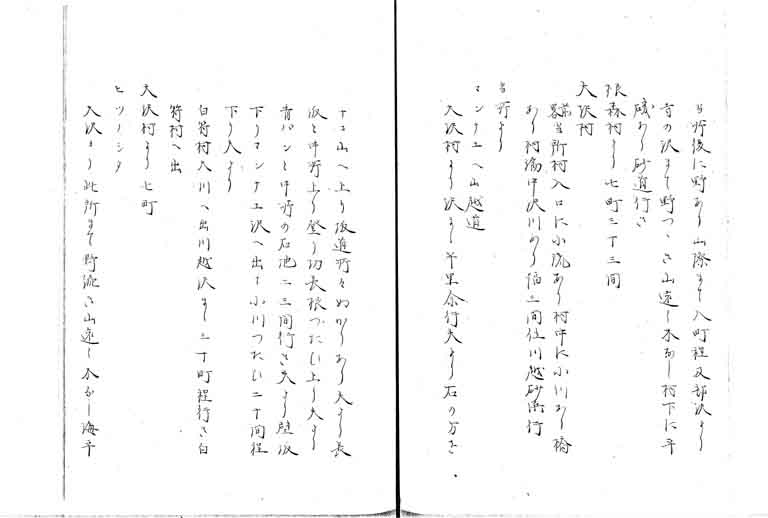 当所後に野あり山際まて八町程又部沢より
寺の沢まて野つゝき山遠し木なし村下に平
磯あり砂道行き
根森村より七町三十三間
大沢村
当所村入口に小流あり村中に小川あり橋
あり村端中沢川あり幅三間位川越砂浜行
当所より
マンナエヘ山越道
大沢村より沢まて半里余行夫より石の方き
ナコ山ヘ上り坂道所々ぬかりあり夫より長
坂と申所上り登り切長根つたひ上り夫より
青バンと申所の石池二三間行き夫より壁坂
下りマンナエ沢ヘ出て小川つたひ二十間程
下り夫より
白符村入川ヘ出川越沢まて三十町程行き白
符村ヘ出
大沢村より七町
ヒツノシタ
大沢より此所まて野流き山遠し木なし海平